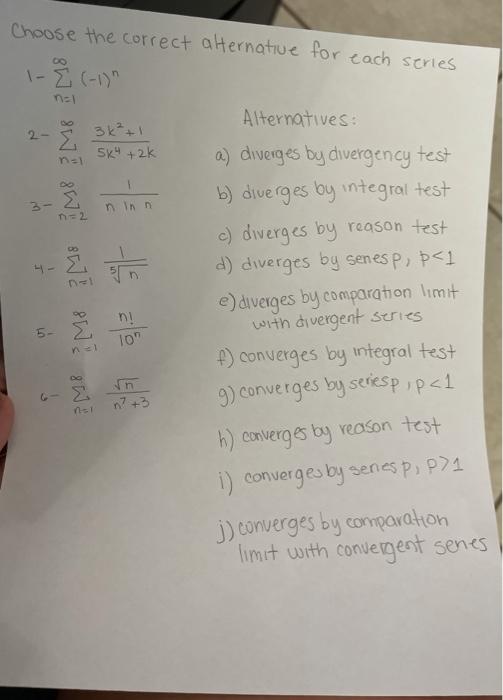 Choose the correct alternative for each series
1- ∞ Σ n=1 (-1)ⁿ
2- ∞ Σ n=1 3k²+1 / 5k⁴+2k
3- ∞ Σ n=2 1 / n ln n
4- ∞ Σ n=1 1 / ⁵√n
5- ∞ Σ n=1 n! / 10ⁿ
6- ∞ Σ n=1 √n / n⁷+3
Alternatives:
a) diverges by divergency test
b) diverges by integral test
c) diverges by reason test
d) diverges by series p, p<1
e) diverges by comparation limit
with divergent series
f) converges by integral test
g) converges by series p, p<1
h) converges by reason test
i) converges by series p, p>1
j) converges by comparation
limit with convergent series